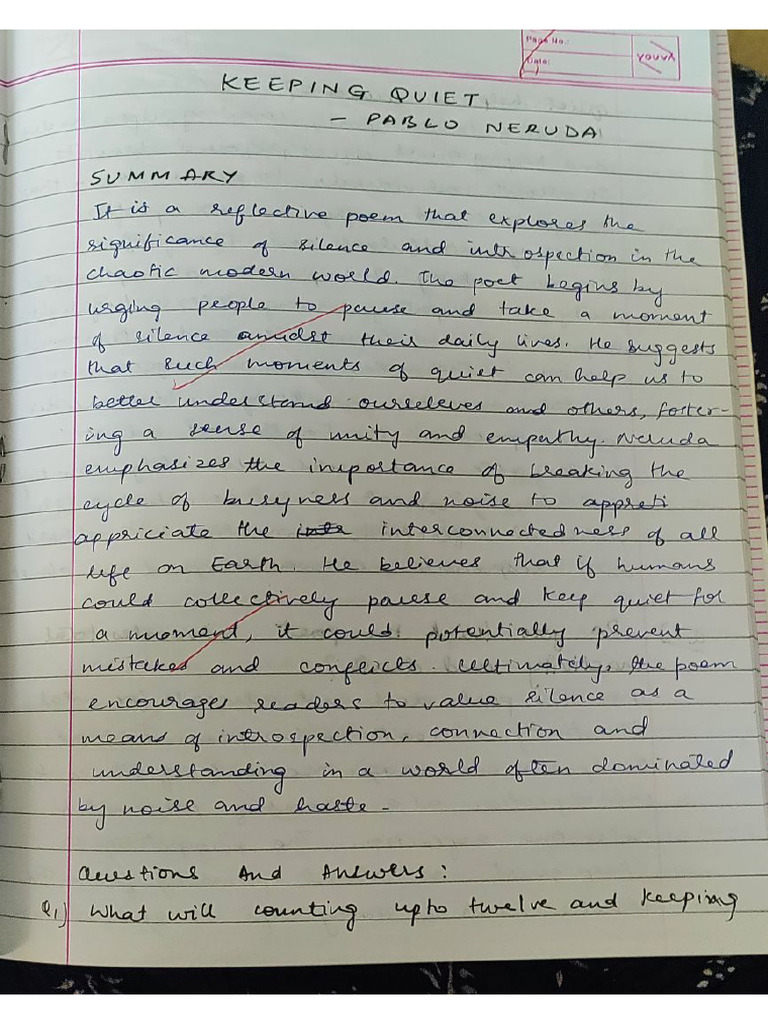 Page No.:
Date:
YOUVA
KEEPING QUIET
- PABLO NERUDA
SUMMARY
It is a reflective poem that explores the
significance of silence and introspection in the
chaotic modern world. The poet begins by
urging people to pause and take a moment
of silence amidst their daily lives. He suggests
that such moments of quiet can help us to
better understand ourselves and others, foster-
ing a sense of unity and empathy. Neruda
emphasizes the importance of breaking the
cycle of busyness and noise to appreti
appriciate the intr interconnectedness of all
life on Earth. He believes that if humans
could collectively pause and keep quiet for
a moment, it could potentially prevent
mistakes and conflicts. Ultimately, the poem
encourages readers to value silence as a
means of introspection, connection and
understanding in a world often dominated
by noise and haste.
Questions And Answers:
Q1) What will counting upto twelve and keeping